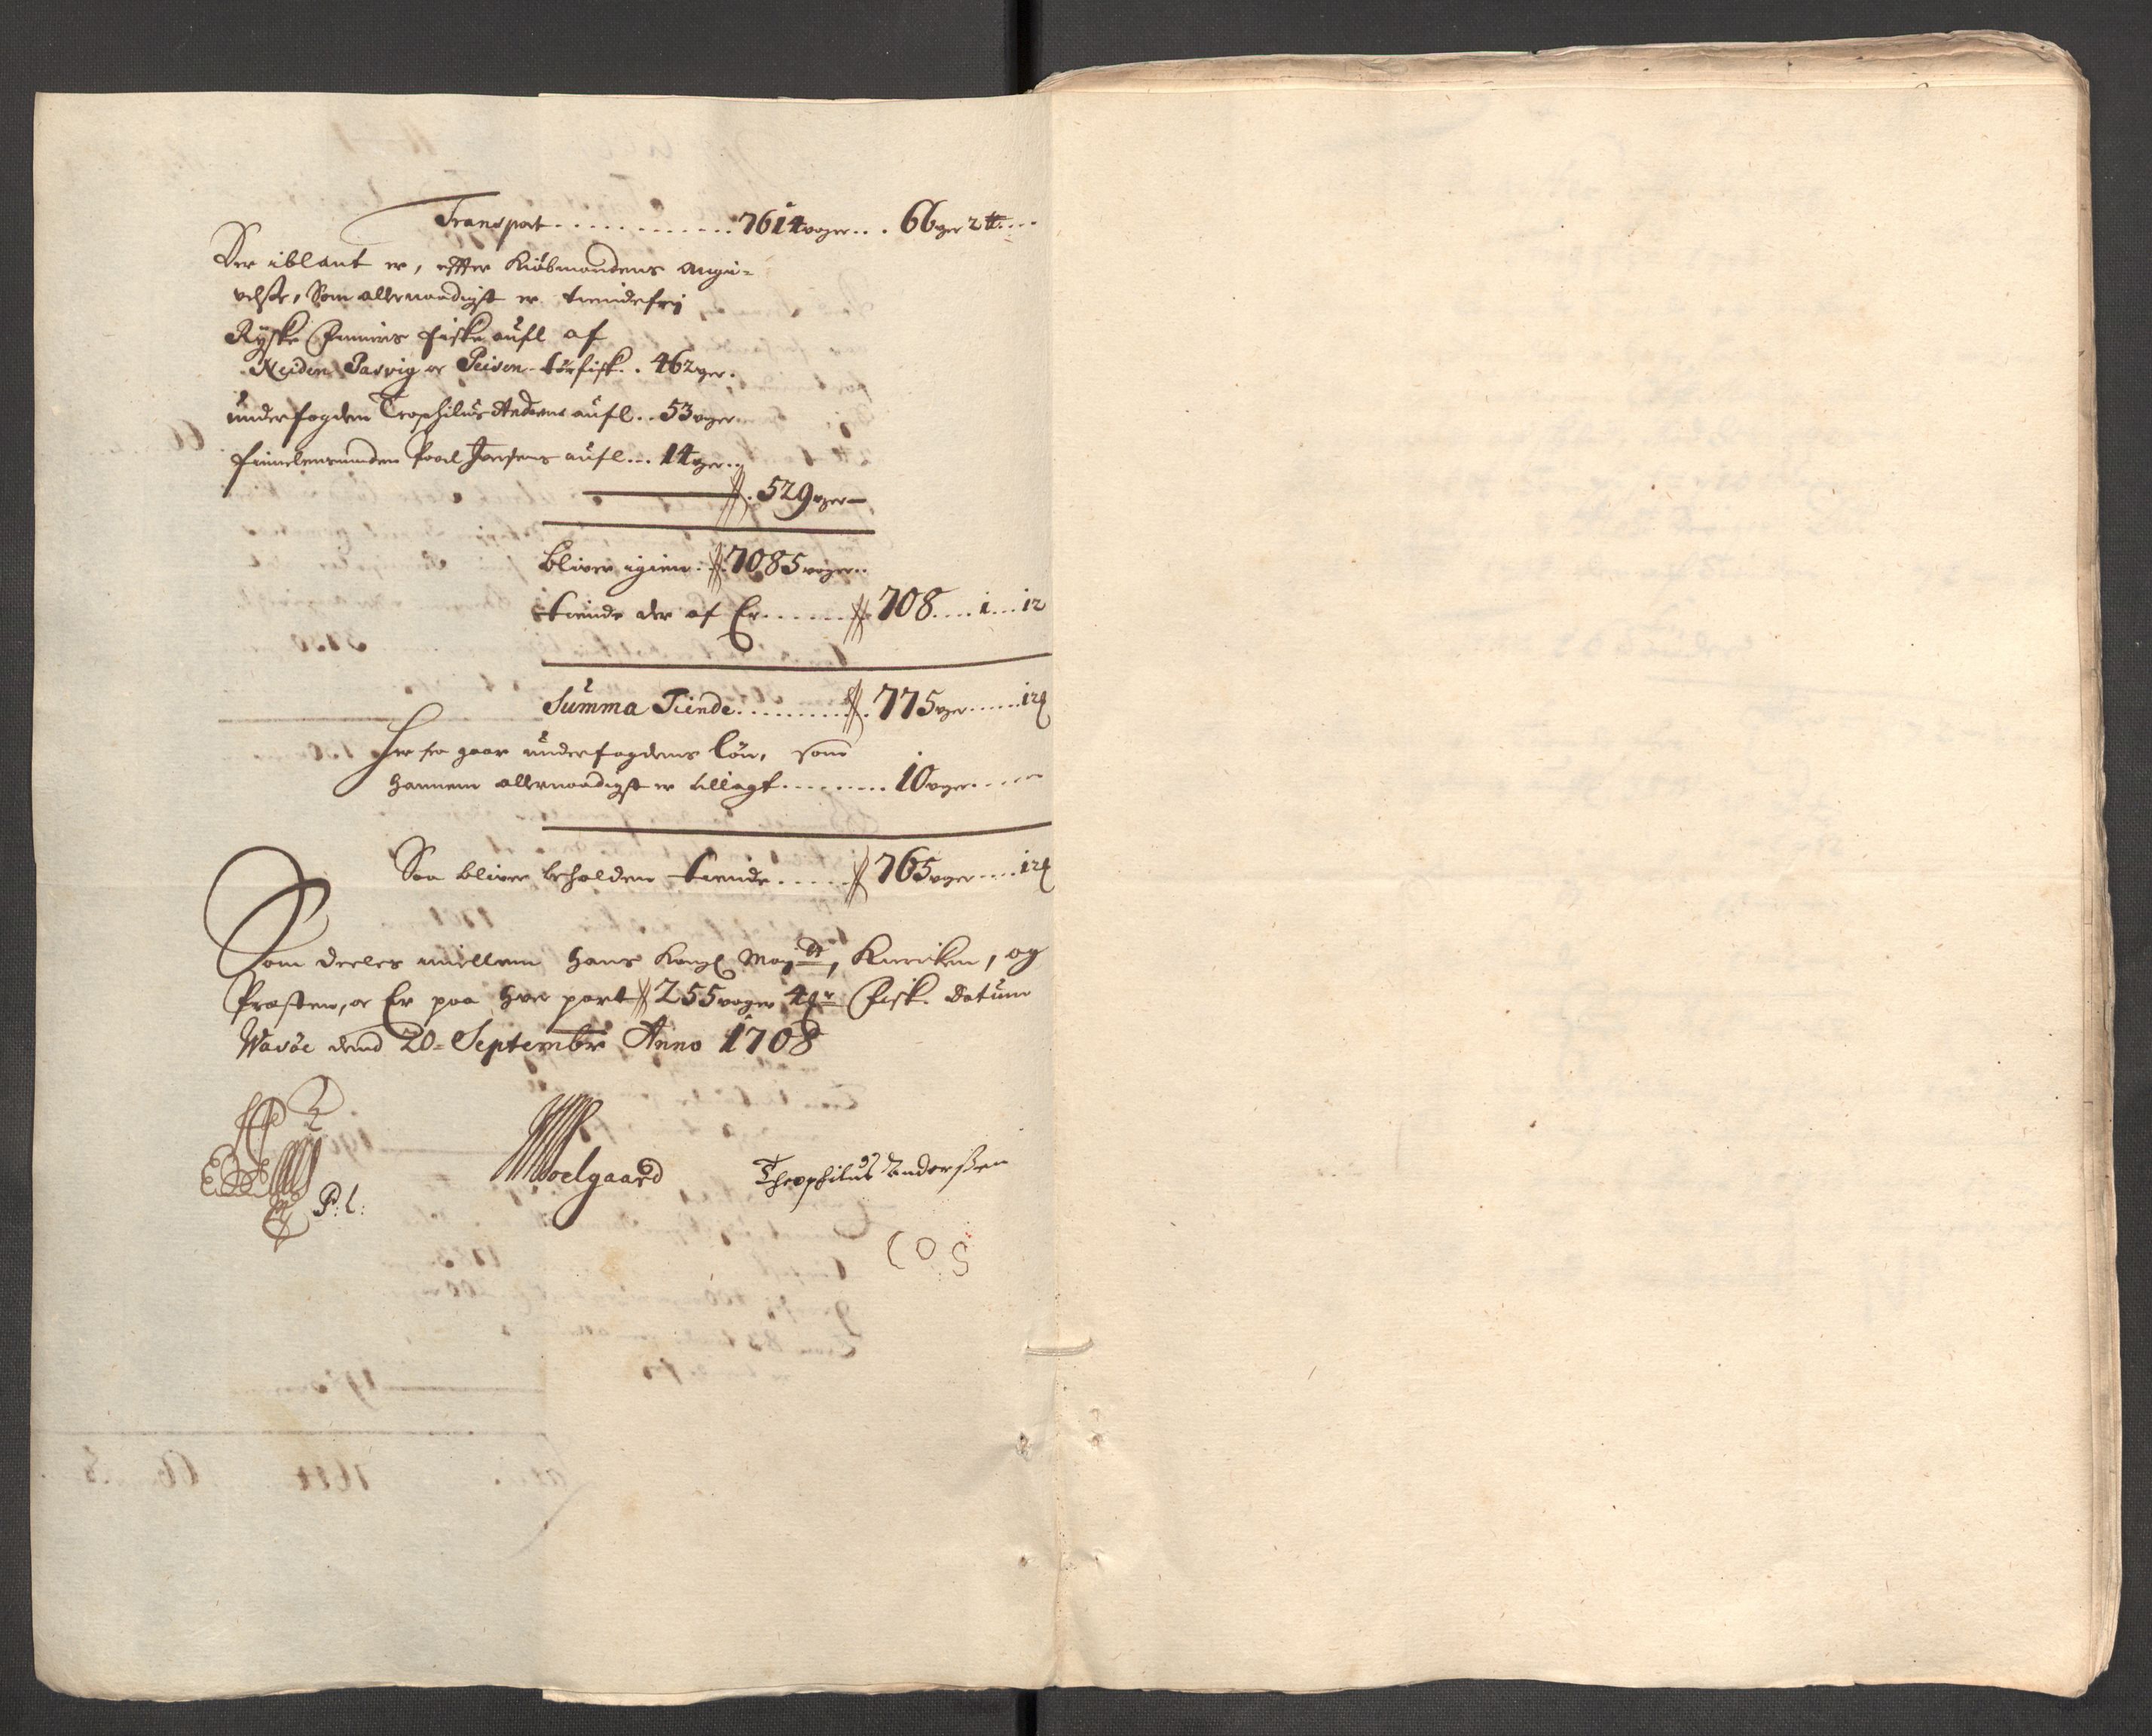 Transport . . . . . . . . . . . . 7614 voger . . . 66 vger 2 ℔ . . .
Der iblant er, effter Kiøbmandens angi-
velsse, Som allernaadigst er tiendefrj
Ryske Finners fiske aufl af
Neiden Pasvig oc Peisen - törfisk . . 462 vger .
underfogden Teophilus Anderss aufl . . 53 vger
finnelensmanden Poel aufl . . . 14 vger . .
529 vger -
Bliver igien . . 7085 voger . .
tiende der af Er . . . . . . . 708 . . . . 1 . . . 12
Summa Tiende . . . . . . . . . 775 vger . . . . . . 12
Her fra gaar underfogdens lön, som
hannem allernaadigst er tillagt . . . . . . . . . 10 vger . . . .
Saa bliver beholden tiende . . . . . 765 vger . . . . 12
Som deeles imellem Hans Kongl Mayᵗ, Kiercken, og
Præsten, oc Er paa hver part 255 voger 4 Fisk. Datum
Wadöe dend 20 = Septembr Anno 1708
P: L:
oelgaard
Theophilus Anderssen